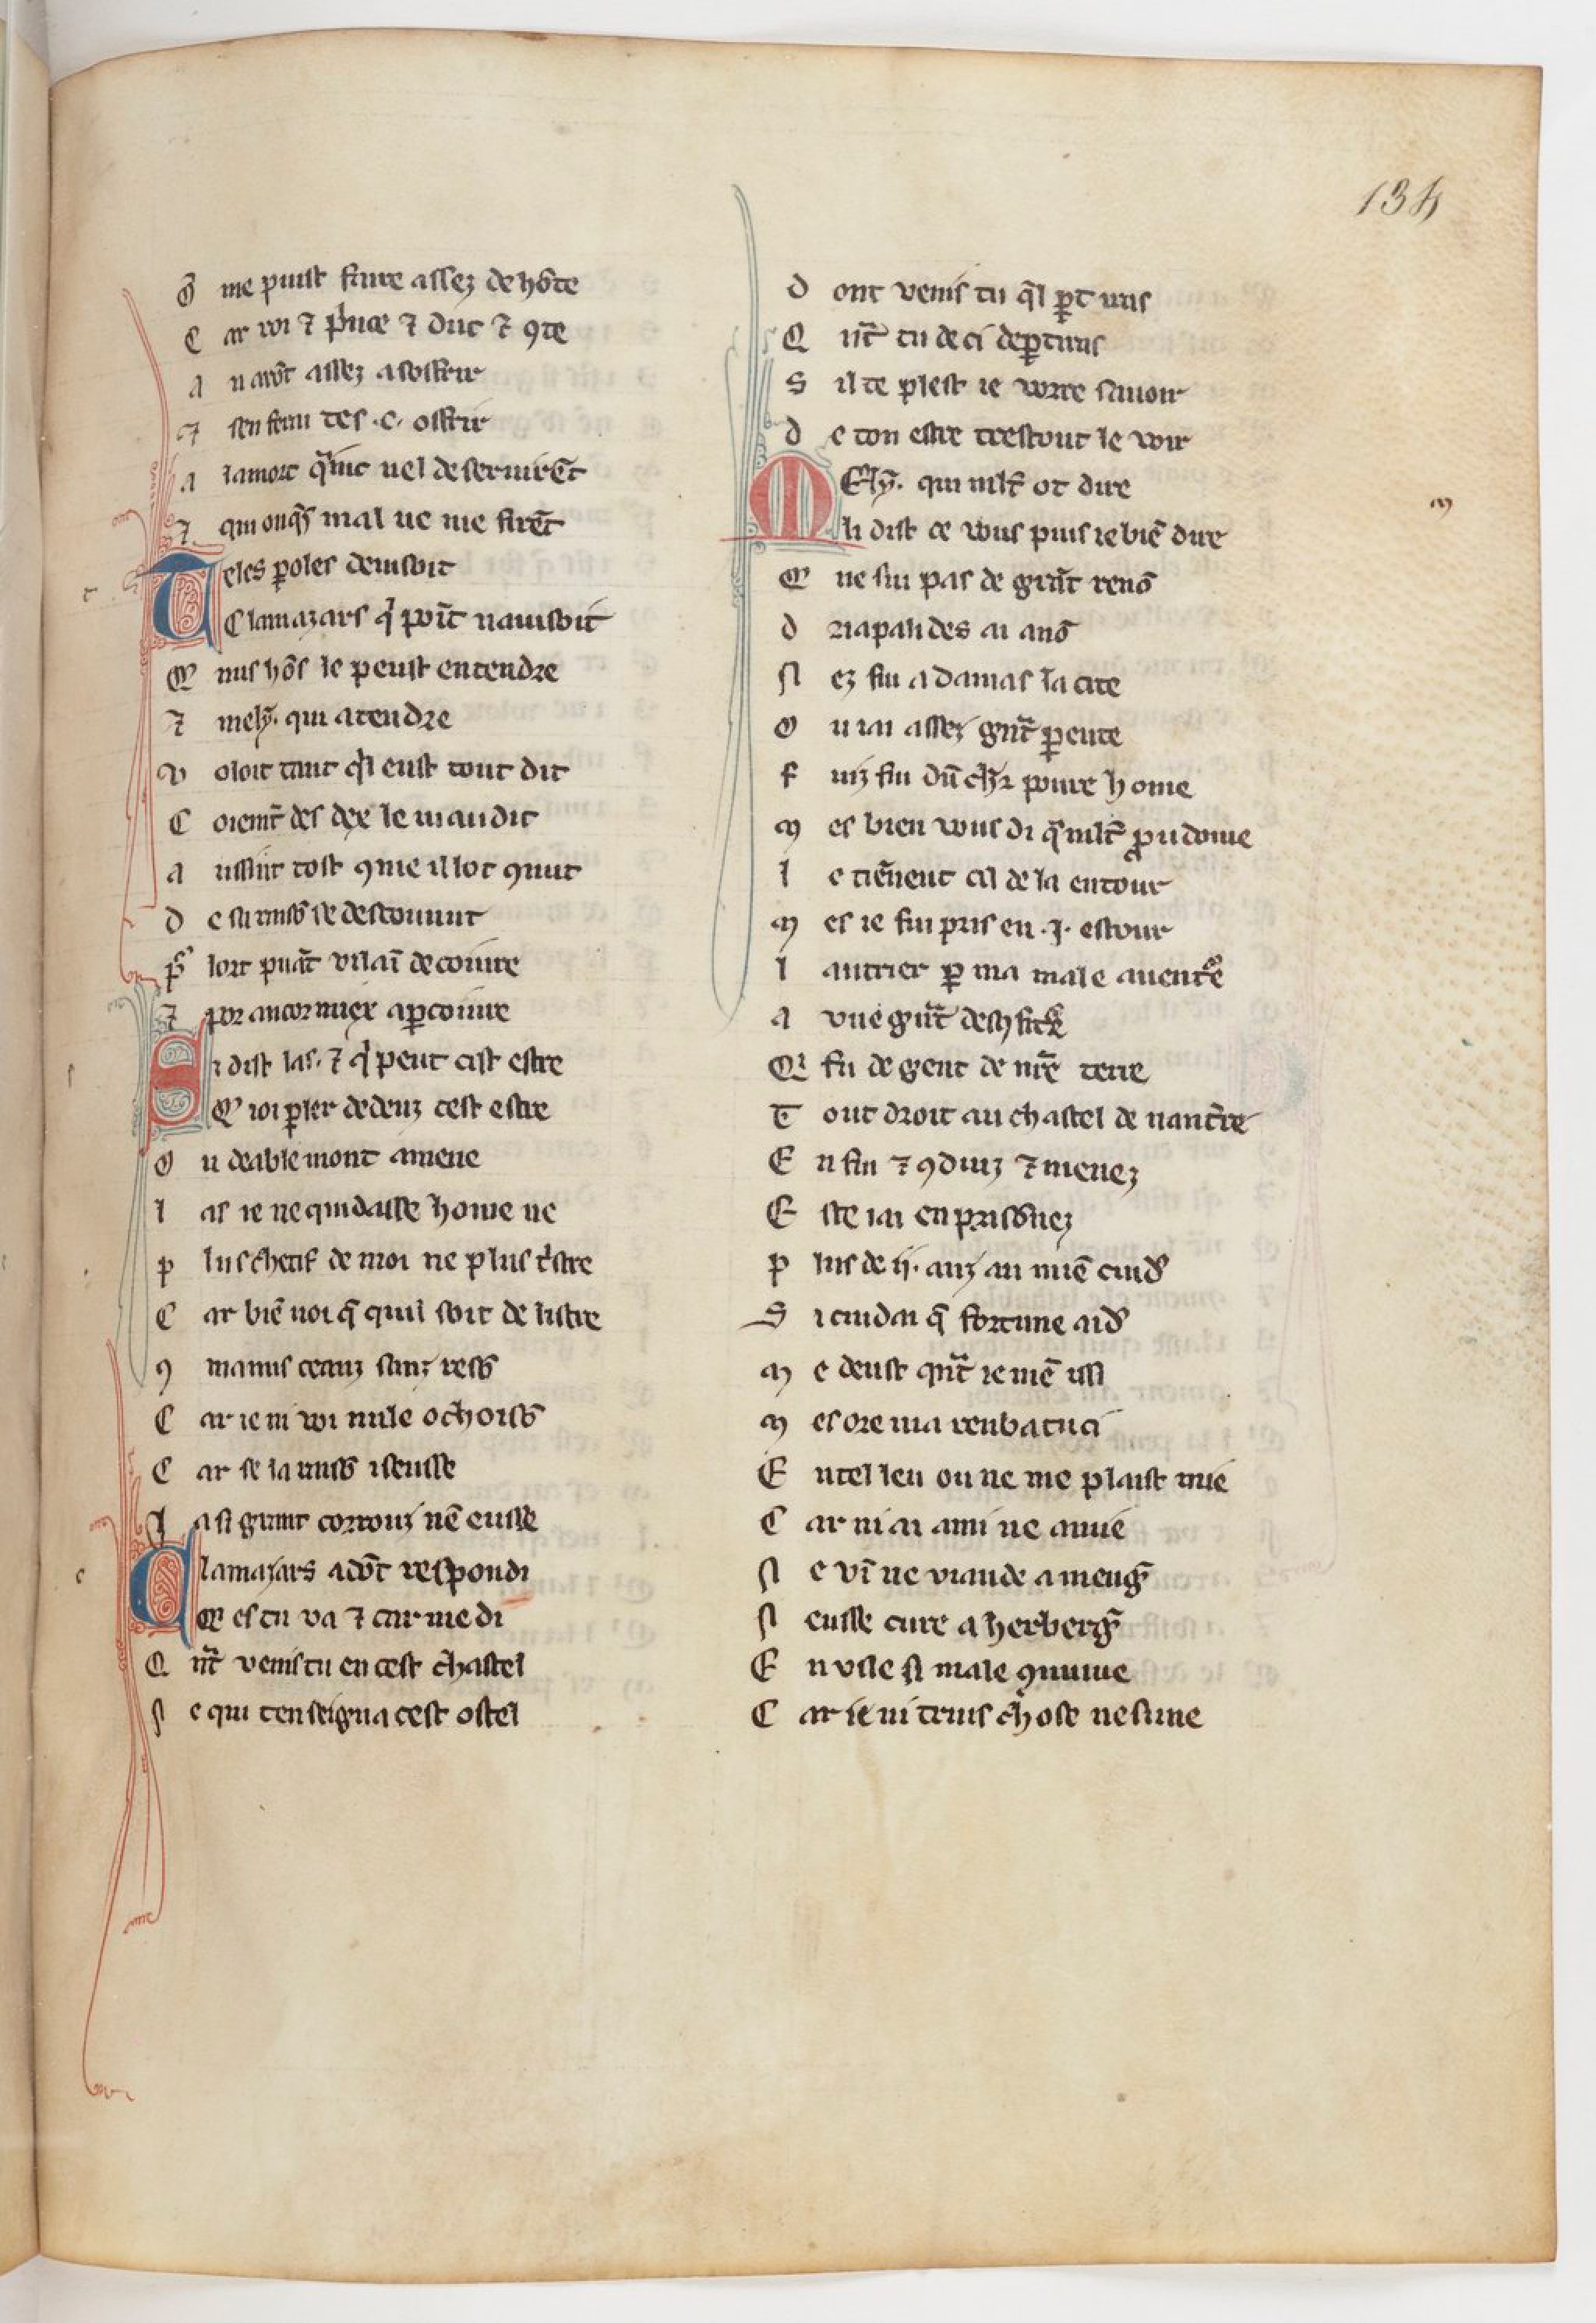 134
õ me puist faire assez de hõte
C ar roi ⁊ p̃nce ⁊ duc ⁊ ꝯte
a n avõt assez a sosfrir
⁊ sen ferai tes .c. osfrir
a la mort q̃inc nel deseruirẽt
⁊ qui onq̃s mal ne me firẽt
T eles ꝑoles deuisoit
Clamazars q̓ poĩt nauisoit
Q̃ nus hõs le peust entendre
⁊ mely᷒. qui atendre
v oloit tant q̓l eust tout dit
C oiemt̃ des dex le maudit
a ussint tost ꝯme il lot ꝯnut
d e sa raisõ se descounut
p̃ lort puãt vilaĩ decoiure
⁊ por ancor miex aꝑcoiure
S i dist las. ⁊ q̓ peut cist estre
Q̃ ioi ꝑler dedenz cest estre
O u deable mont amene
l as ie ne quidasse home ne
p lus chetif de moi ne plus t̓stre
C ar biẽ uoi q̃ quil soit de listre
ꝯ manus ceanz sanz resõ
C ar ie ni voi nule ochoisõ
C ar se la raisõ i seusse
J a si grant corrouz nẽ eusse
C lamazars adõt respondi
Q̃ es tu va ⁊ car me di
Q nt̃ venis tu en cest chastel
N e qui tenseigna cest ostel
d ont venis tu q̃l ꝑt iras
Q nt̃ tu de ci deꝑtiras
S il te plest ie vorre sauoir
d e ton estre trestout le voir
M Ely᷒. qui mlt̃ ot dire
li dist ce vous puis ie biẽ dire
Q̃ ne sui pas de grãt renõ
d riapalides ai a nõ
N ez fui a damas la cite
O u iai assez gnt̃ ꝑente
f iuz fui dũ chr̃ poure home
m es bien vous di q̃ mlt̃ ꝓudome
l e tiẽnent cil de la entour
m es ie fui pris en .J. estour
l autrier ꝑ ma male auentᷓe
a vne gnt̃ descõfitᷓe
Qi fu de gent de nr̃e terre
T out droit au chastel de nant̓re
E n fui ⁊ ꝯduiz ⁊ menez
E ste iai enprisõnez
p lus de ij. anz au miẽ cuid̓
S i cuidai q̃ fortune aid̓
m e deust qnt̃ ie mẽ issi
m es ore ma renbatu ci
E n tel leu ou ne me plaist mie
C ar ni ai ami ne amie
N e vĩ ne viande a meng̃
N eusse cure a herberg̃
E n vile si male ꝯmune
C ar ie ni truis chose nesune